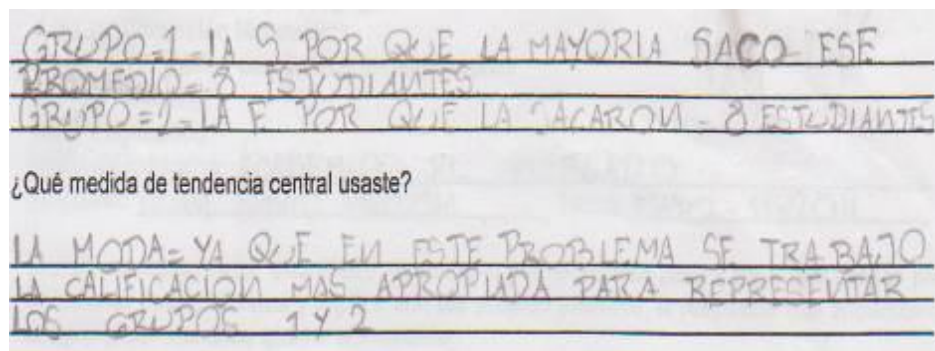 GRUPO=1=LA S POR QUE LA MAYORIA SACO ESE
PROMEDIO= 8 ESTUDIANTES
GRUPO=2=LA E POR QUE LA SACARON = 8 ESTUDIANTES
¿Qué medida de tendencia central usaste?
LA MODA= YA QUE EN ESTE PROBLEMA SE TRABAJO
LA CALIFICACION MAS APROPIADA PARA REPRESENTAR
LOS GRUPOS 1 Y 2